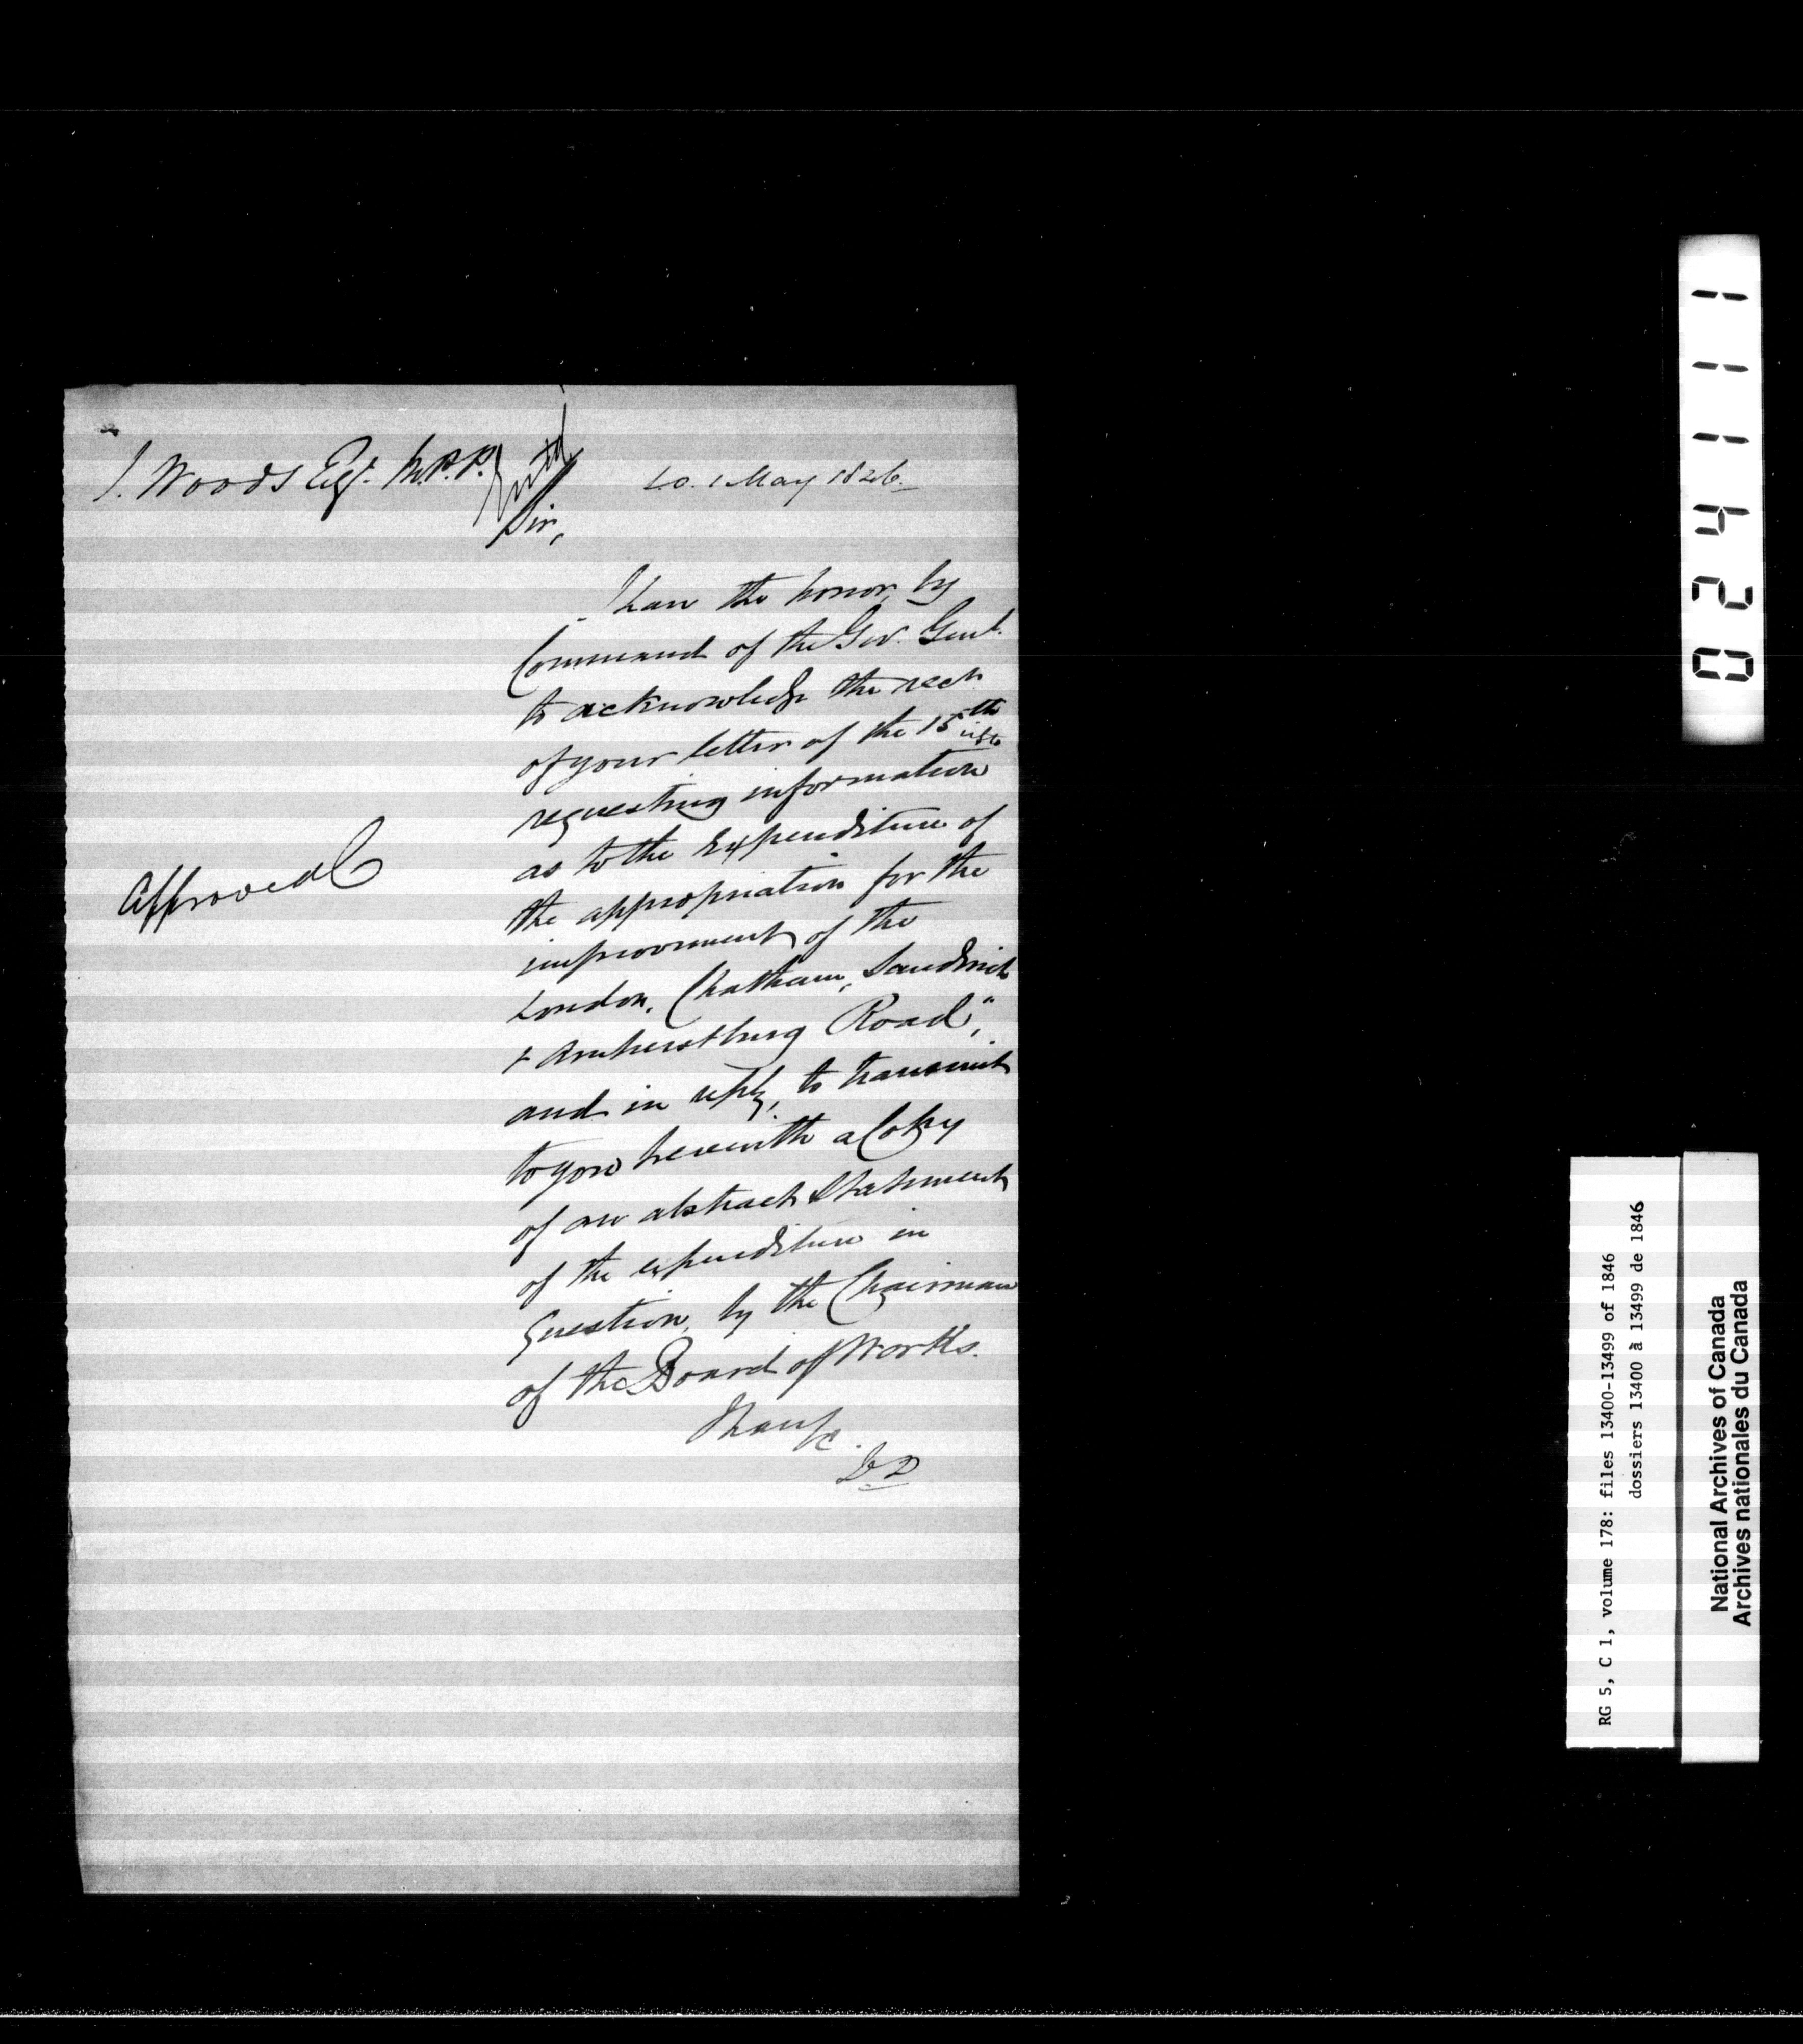 J. Woods Esqr. M.P.P.
Entd
S.O. 1 May 1846.
Sir,
I have the honor, by
Command of the Gov. Genl.
to acknowledge the rect.
of your letter of the 15th
ulto
requesting information
as to the Expenditure of
the appropriation for the
improvement of the
London, Chatham, Sandwich
& Amherstburg Road",
and in reply, to transmit
to you herewith a Copy
of an abstract Statement
of the expenditure in
question, by the Chairman
of the Board of Works.
I have &c.
D. D
Approved
024111
RG 5, C 1, volume 178: files 13400-13499 of 1846
dossiers 13400 à 13499 de 1846
National Archives of Canada
Archives nationales du Canada